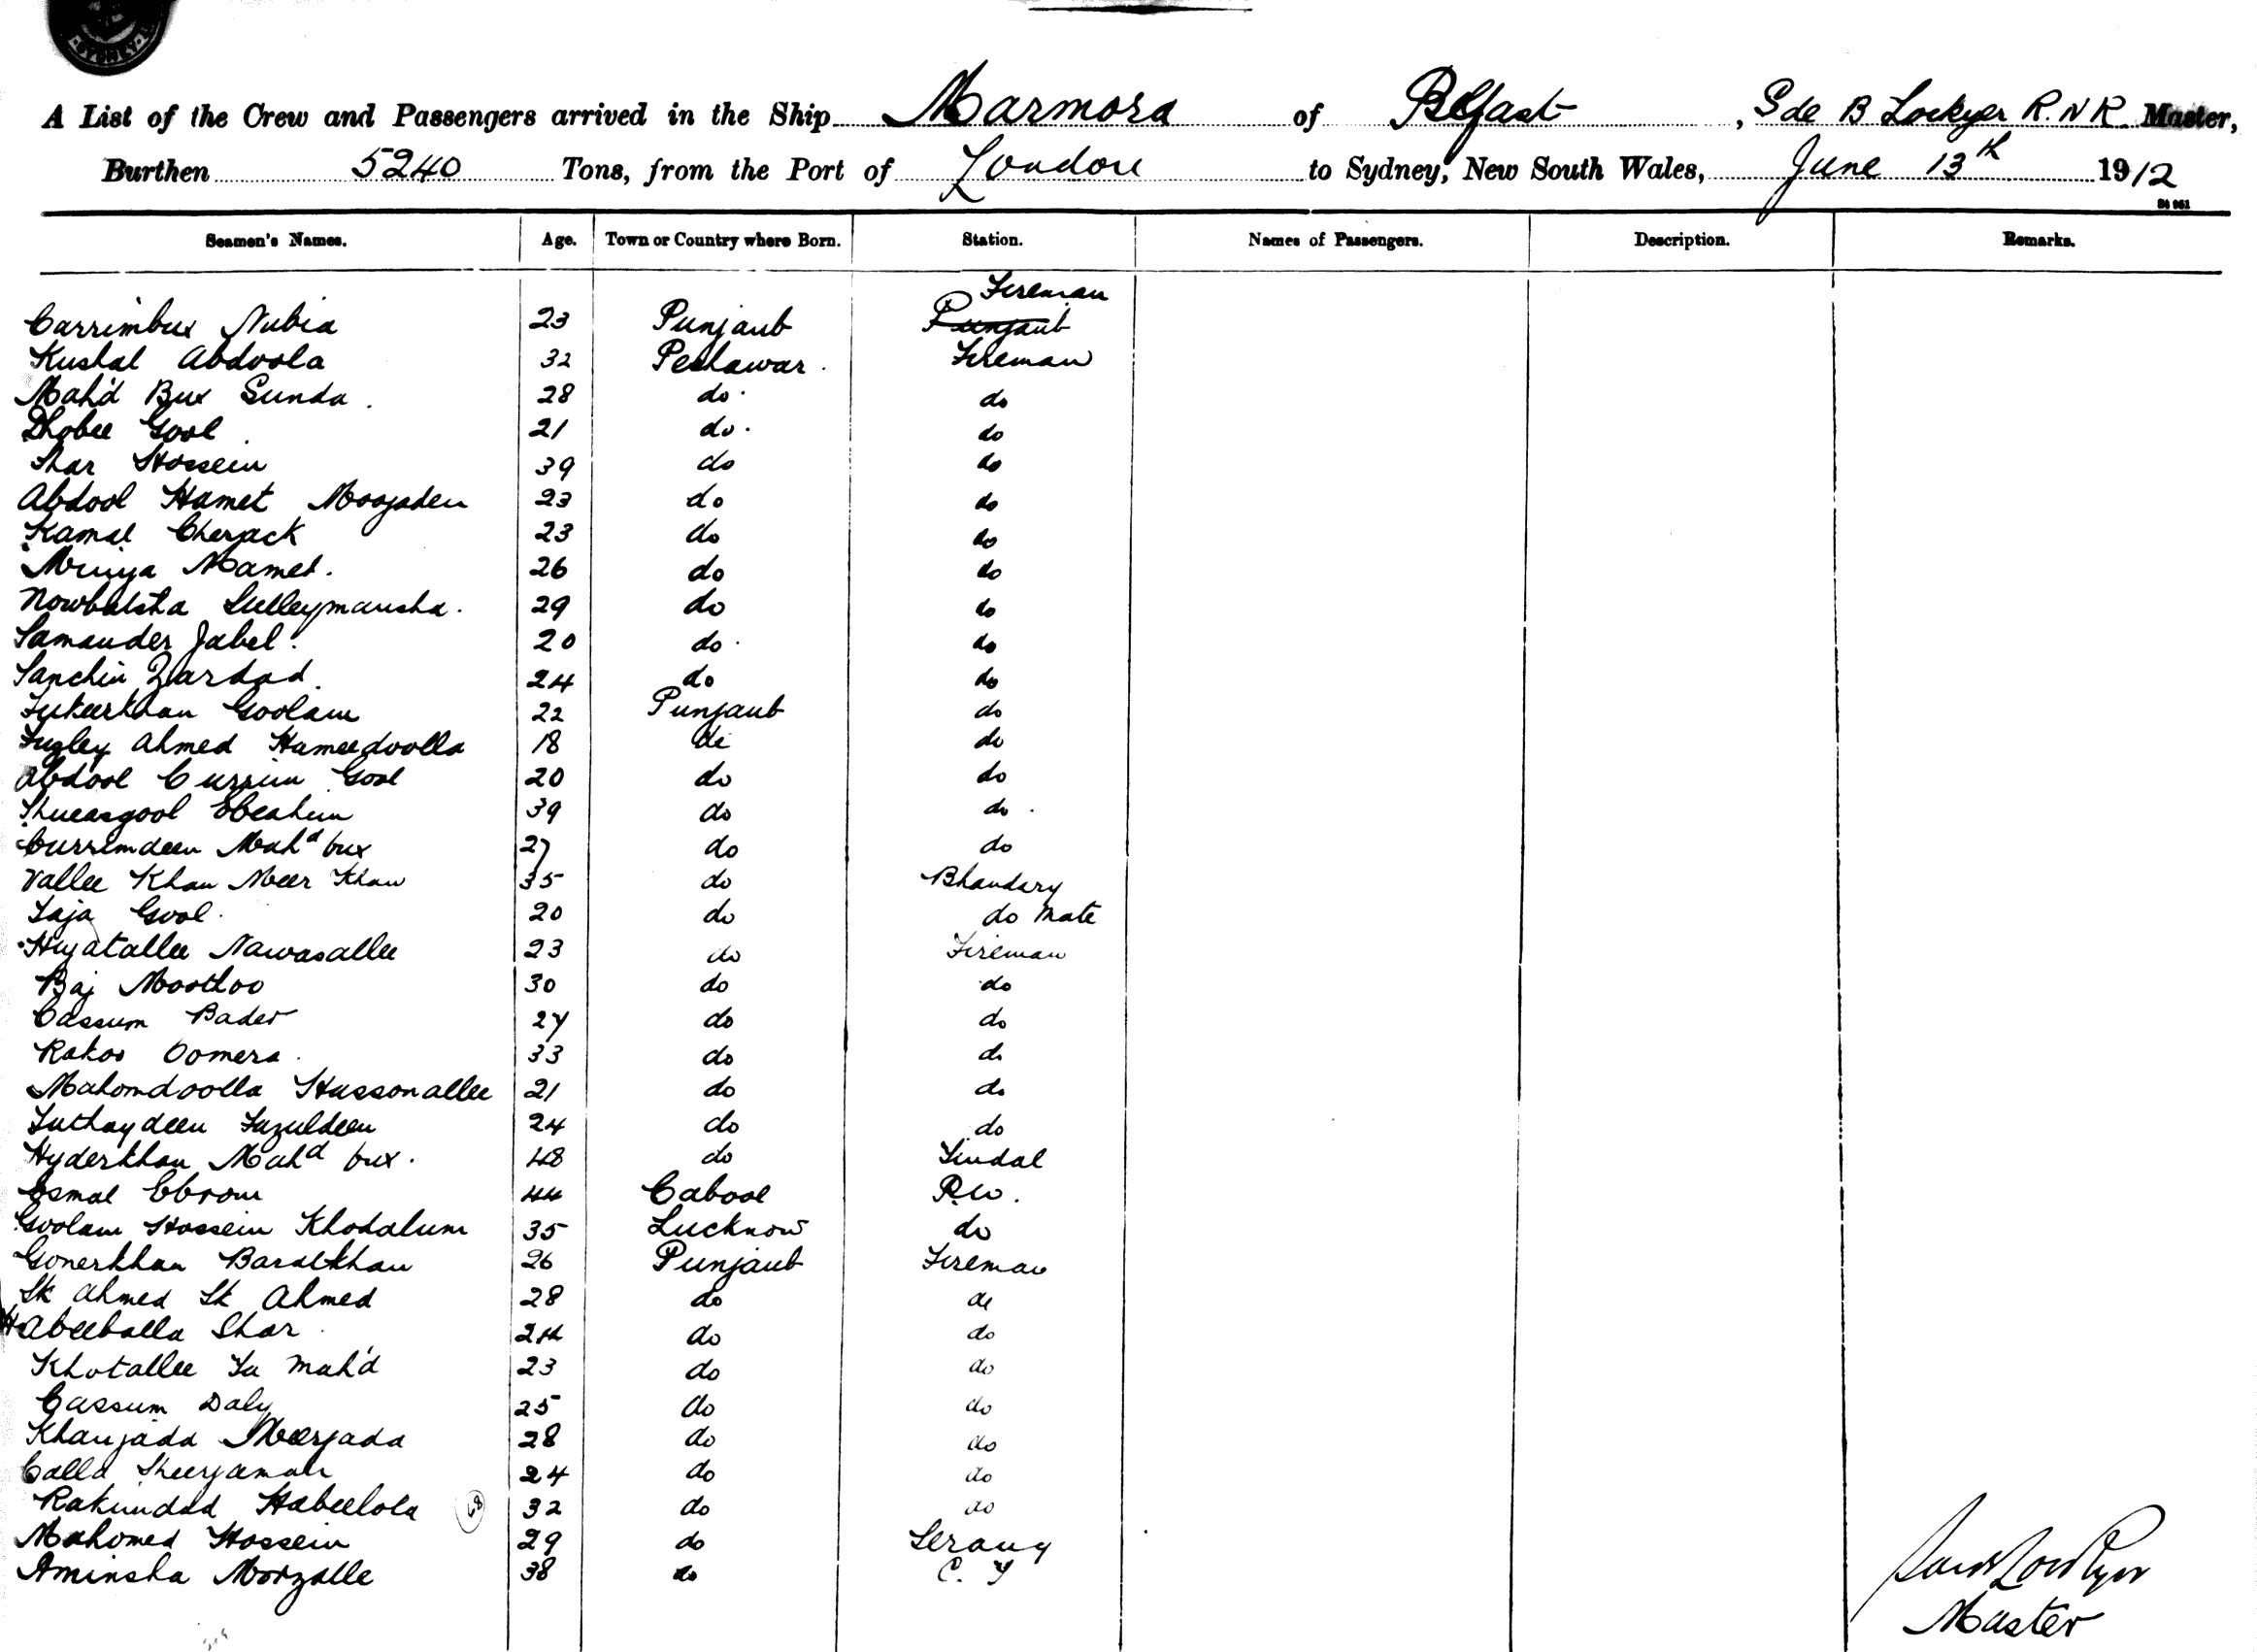 A List of the Crew and Passengers arrived in the Ship Marmora of Belfast, S de B Lockyer R.N.R. Master,
Burthen 5240 Tons, from the Port of London to Sydney, New South Wales, June 13th 1912
St 961
Seamen's Names. Age. Town or Country where Born. Station. Names of Passengers. Description. Remarks.
Fireman
Carrimbux Nubia 23 Punjaub Punjaub
Kushal Abdoola 32 Peshawar. Fireman
Mah'd Bux Sunda. 28 do. do
Dhobee Gool. 21 do. do
Shar Hossein 39 do do
Abdool Hamet Moojaden 23 do do
Kamal Cherjack 23 do do
Mruya Mamet. 26 do do
Nowbatsha Sulleymansha. 29 do do
Samander Jabel. 20 do. do
Sanchin Zardad. 24 do do
Fukeerkhan Goolam 22 Punjaub do
Fugley Ahmed Hameedoolla 18 do do
Abdool Currim Gool 20 do do
Ebrahim 39 do do.
Currimdeen Mahd bux 27 do do
Vallee Khan Meer Khan 35 do Bhandary
Taja Gool. 20 do do Mate
Hyatallee Nawasallee 23 do Fireman
Baj Moothoo 30 do do
Cassum Bader 27 do do
Rakoo Oomera. 33 do do
Mahomdoolla Hussonallee 21 do do
Futhaydeen Fazuldeen 24 do do
Hyderkhan Mahd bux. 48 do Tindal
Esmal Ebrom 44 Cabool P.W.
Goolam Hossein Khodalum 35 Lucknow do
Gonerkhan Baratkhan 26 Punjaub Fireman
Sk Ahmed Sk Ahmed 28 do do
Habeeballa Shar. 24 do do
Khotallee Fa Mah'd 23 do do
Cassum Daly 25 do do
Khanjada Meerjada 28 do do
Calla Sheerjaman 24 do do
Rakimdad Habeelola 32 do do
Mahomed Hossein 29 do Serang
Aminsha Morzalle 38 do C.
Master